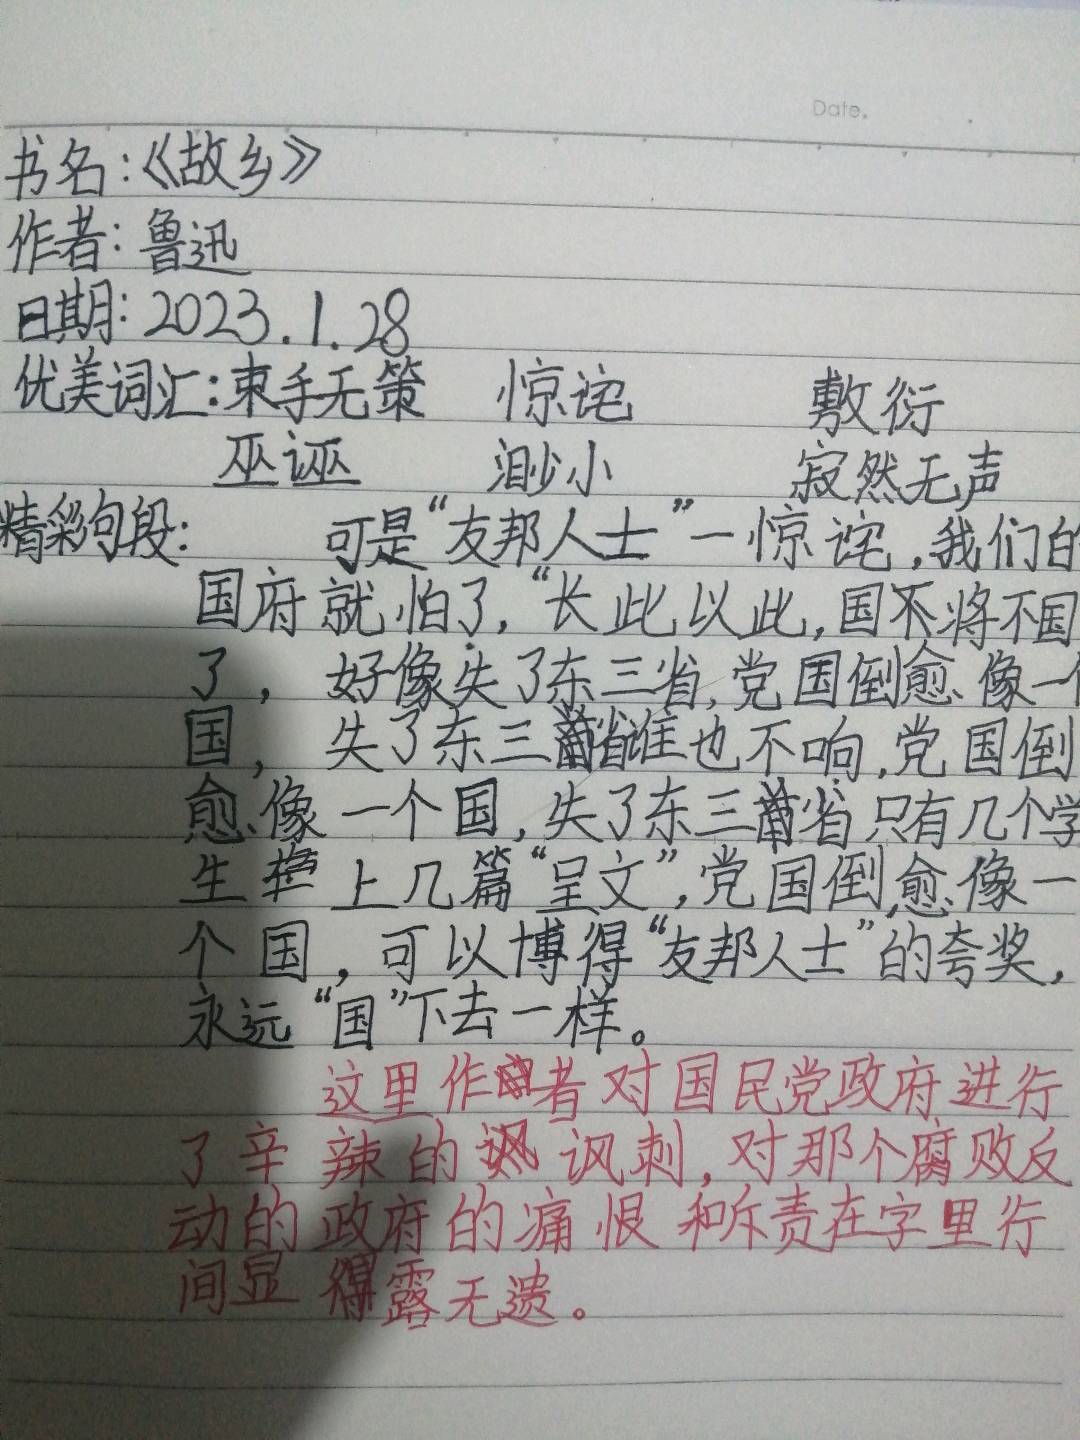 Date.
书名:《故乡》
作者:鲁迅
日期:2023.1.28
优美词汇:束手无策 惊诧 敷衍
巫诬 渺小 寂然无声
精彩句段: 可是“友邦人士”一惊诧,我们的
国府就怕了,“长此以此,国不将不国
了,好像失了东三省,党国倒愈像一个
国,失了东三省谁也不响,党国倒
愈像一个国,失了东三省只有几个学
生 上几篇“呈文”,党国倒愈像一
个国,可以博得“友邦人士”的夸奖,
永远“国”下去一样。
这里作者对国民党政府进行
了辛辣的讽刺,对那个腐败反
动的政府的痛恨和斥责在字里行
间显露无遗。